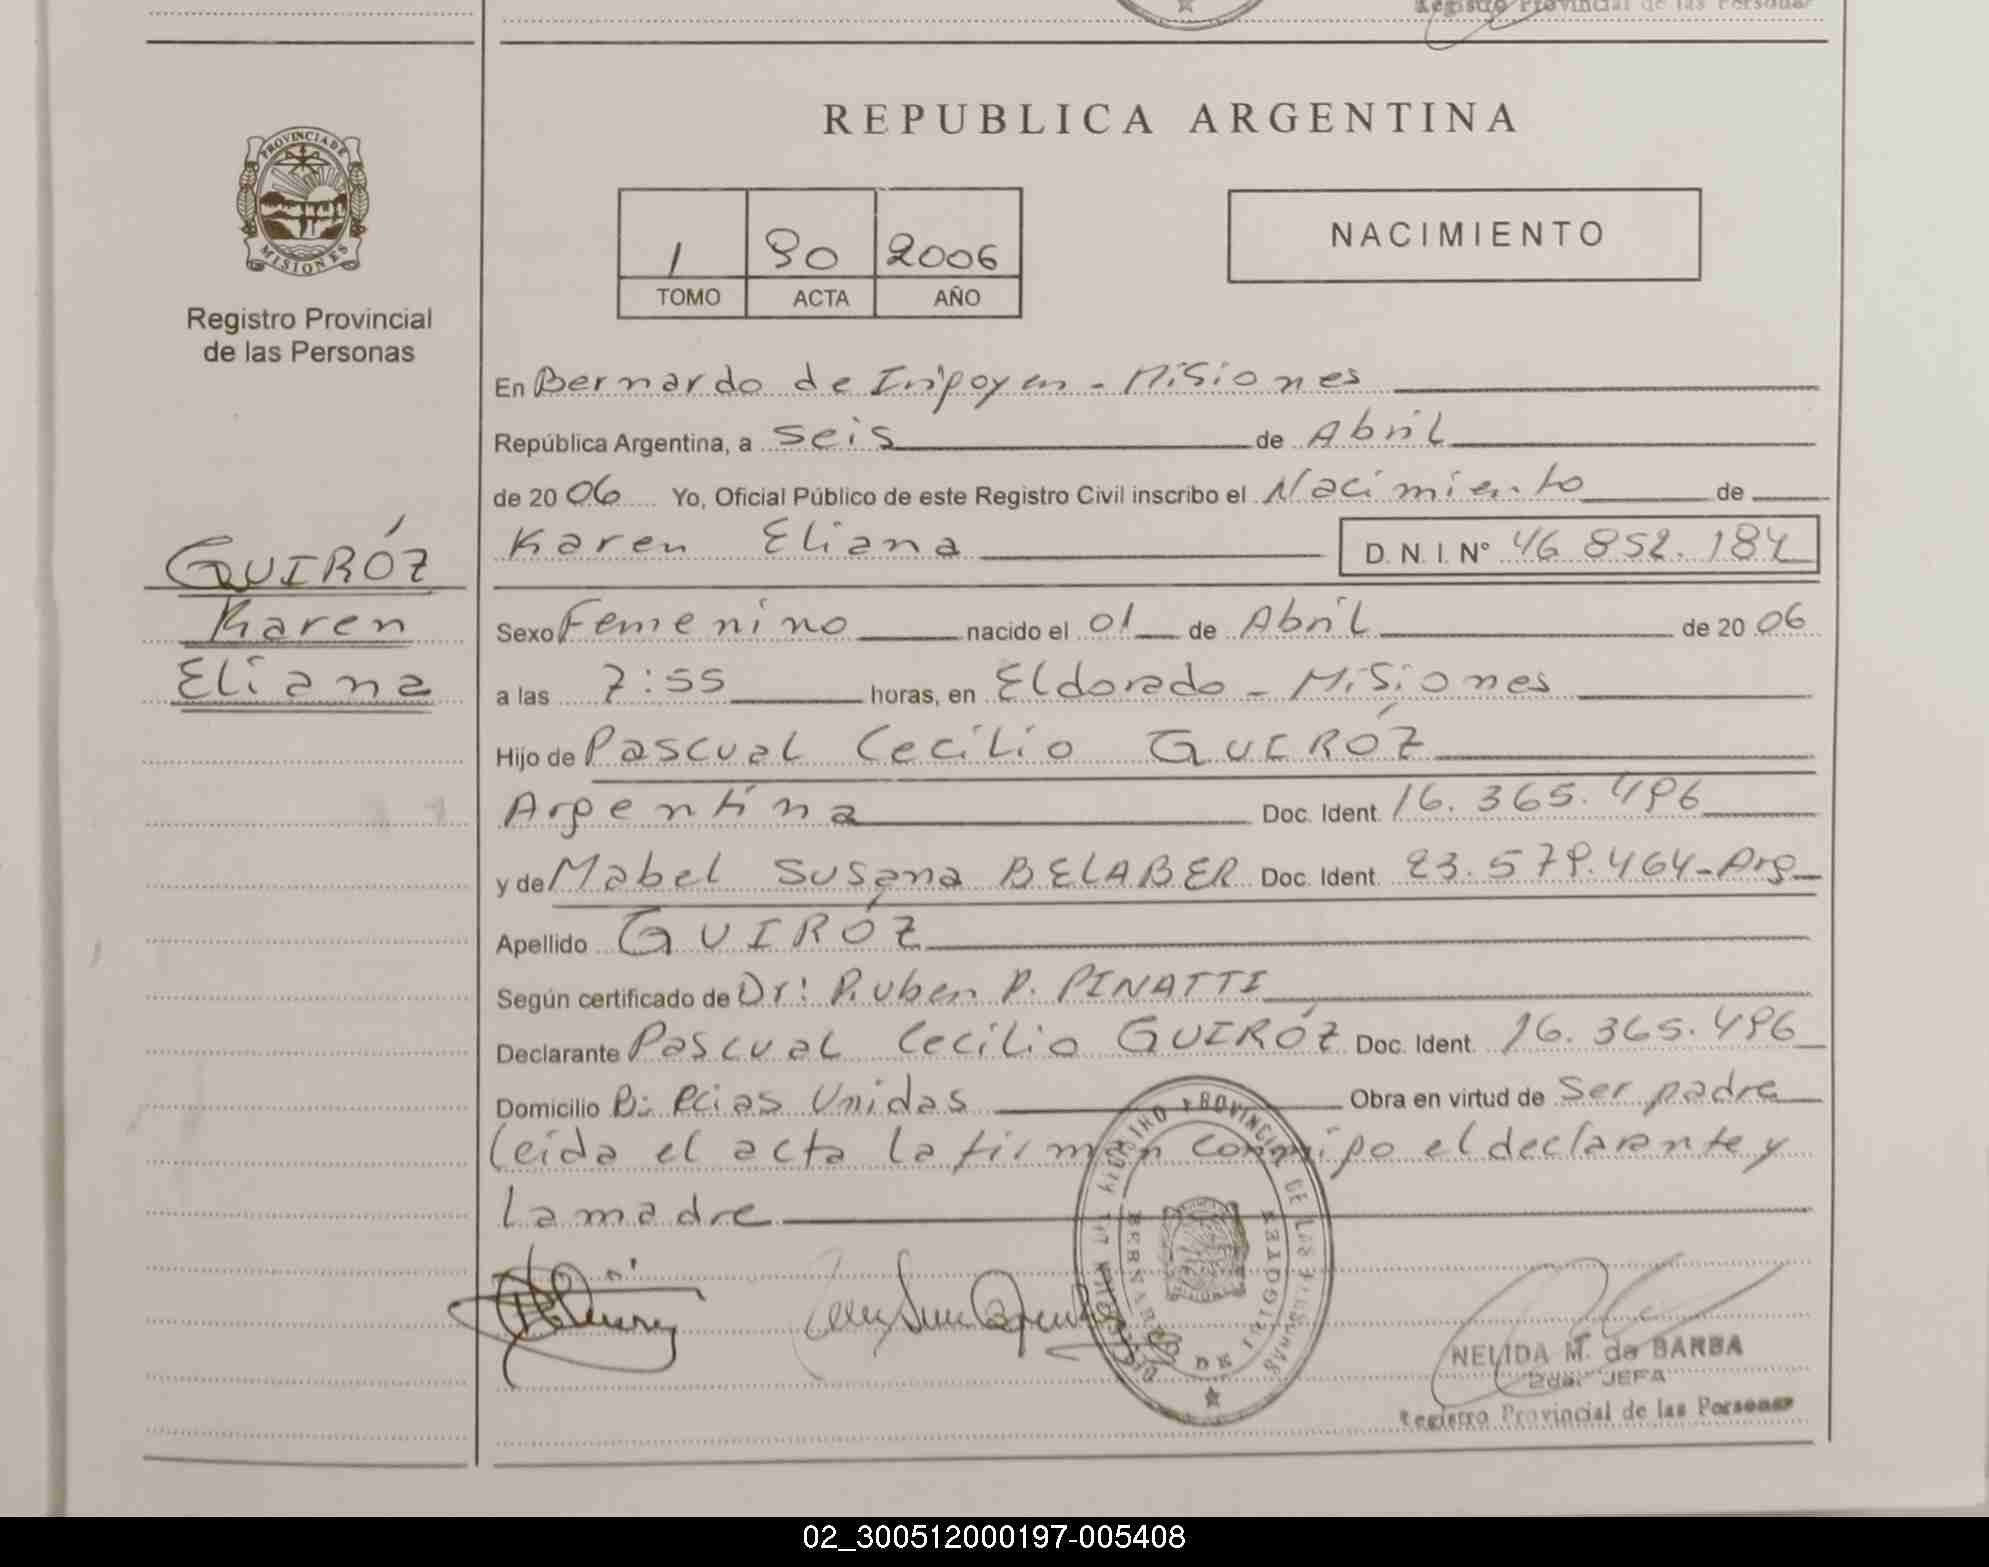 Registro Provincial de las Personas
REPUBLICA ARGENTINA
PROVINCIA DE
MISIONES
Registro Provincial
de las Personas
1 90 2006
TOMO ACTA AÑO
NACIMIENTO
En Bernardo de Irigoyen - Misiones
República Argentina, a seis de Abril
de 2006 Yo, Oficial Público de este Registro Civil inscribo el Nacimiento de
Karen Eliana D. N. I. N° 46 852.184
QUIRÓZ
Karen
Eliana
Sexo Femenino nacido el 01 de Abril de 2006
a las 7:55 horas, en Eldorado - Misiones
Hijo de Pascual Cecilio QUIRÓZ
Argentina Doc. Ident. 16.365.496
y de Mabel Susana BELABER Doc. Ident. 23.579.464-Arg
Apellido QUIRÓZ
Según certificado de Dr: Ruben P. PINATTI
Declarante Pascual Cecilio QUIRÓZ Doc. Ident. 16.365.496
Domicilio B: Pcias Unidas Obra en virtud de Ser padre
leida el acta la firman conmigo el declarante y
la madre
REGISTRO PROVINCIAL DE LAS PERSONAS
BERNARDO DE IRIGOYEN
NELIDA M. de BARBA
2da. JEFA
Registro Provincial de las Personas
02_300512000197-005408